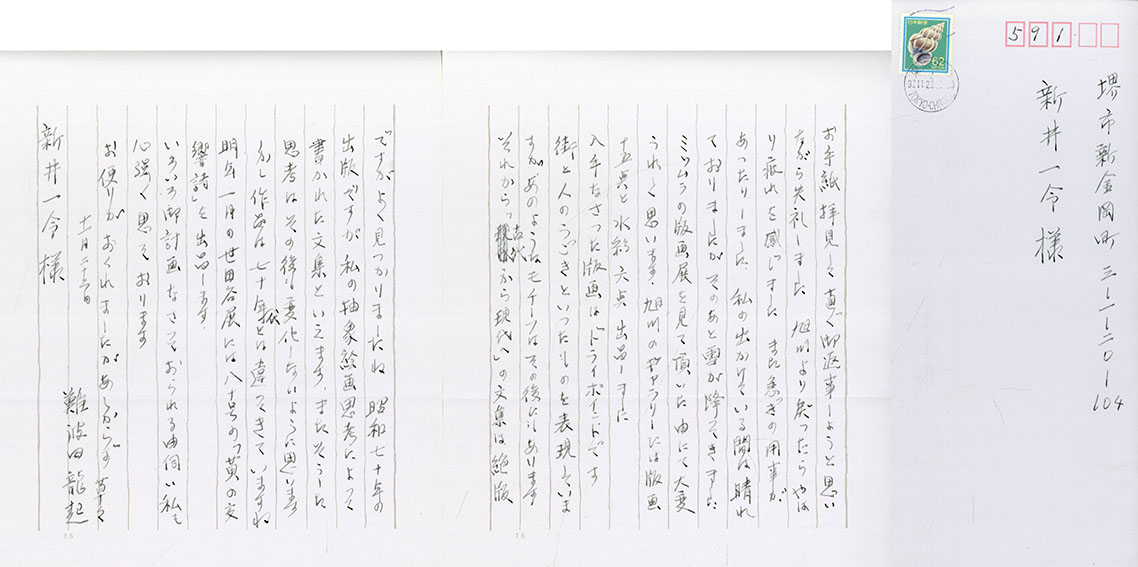 591
堺市新金岡町 三ー一ー二〇ー104
新井一令様
日本郵便
62
お手紙拝見して直ぐ御返事しようと思い
ながら失礼しました 旭川より戻ったらやは
り疲れを感じました また急ぎの用事が
あったりしました、私の出かけている間は晴れ
ておりましたがそのあと雪が降ってきました
ミツムラの版画展を見て頂いた由にて大変
うれしく思います、旭川のギャラリーには版画
十五点と水彩六点出品しました
入手なさった版画は「ドライポイント」です
街と人のうごきといったものを表現していま
すがあのようなモチーフはその後にもあります
それから「古代から現代へ」の文集は絶版
T.S
ですがよく見つかりましたね 昭和七十年の
出版ですが 私の抽象絵画思考によって
書かれた文集といえます、またそうした
思考はその後も変化しないように思います
しかし作品は七十年代とは違ってきていますね
明年一月の世田谷展には八十号の「黄の交
響詩」を出品します、
いろいろ御計画なさっておられる由伺い私も
心強く思っております
お便りがおくれましたがあしからず 草々
難波田龍起
新井一令様
T.S